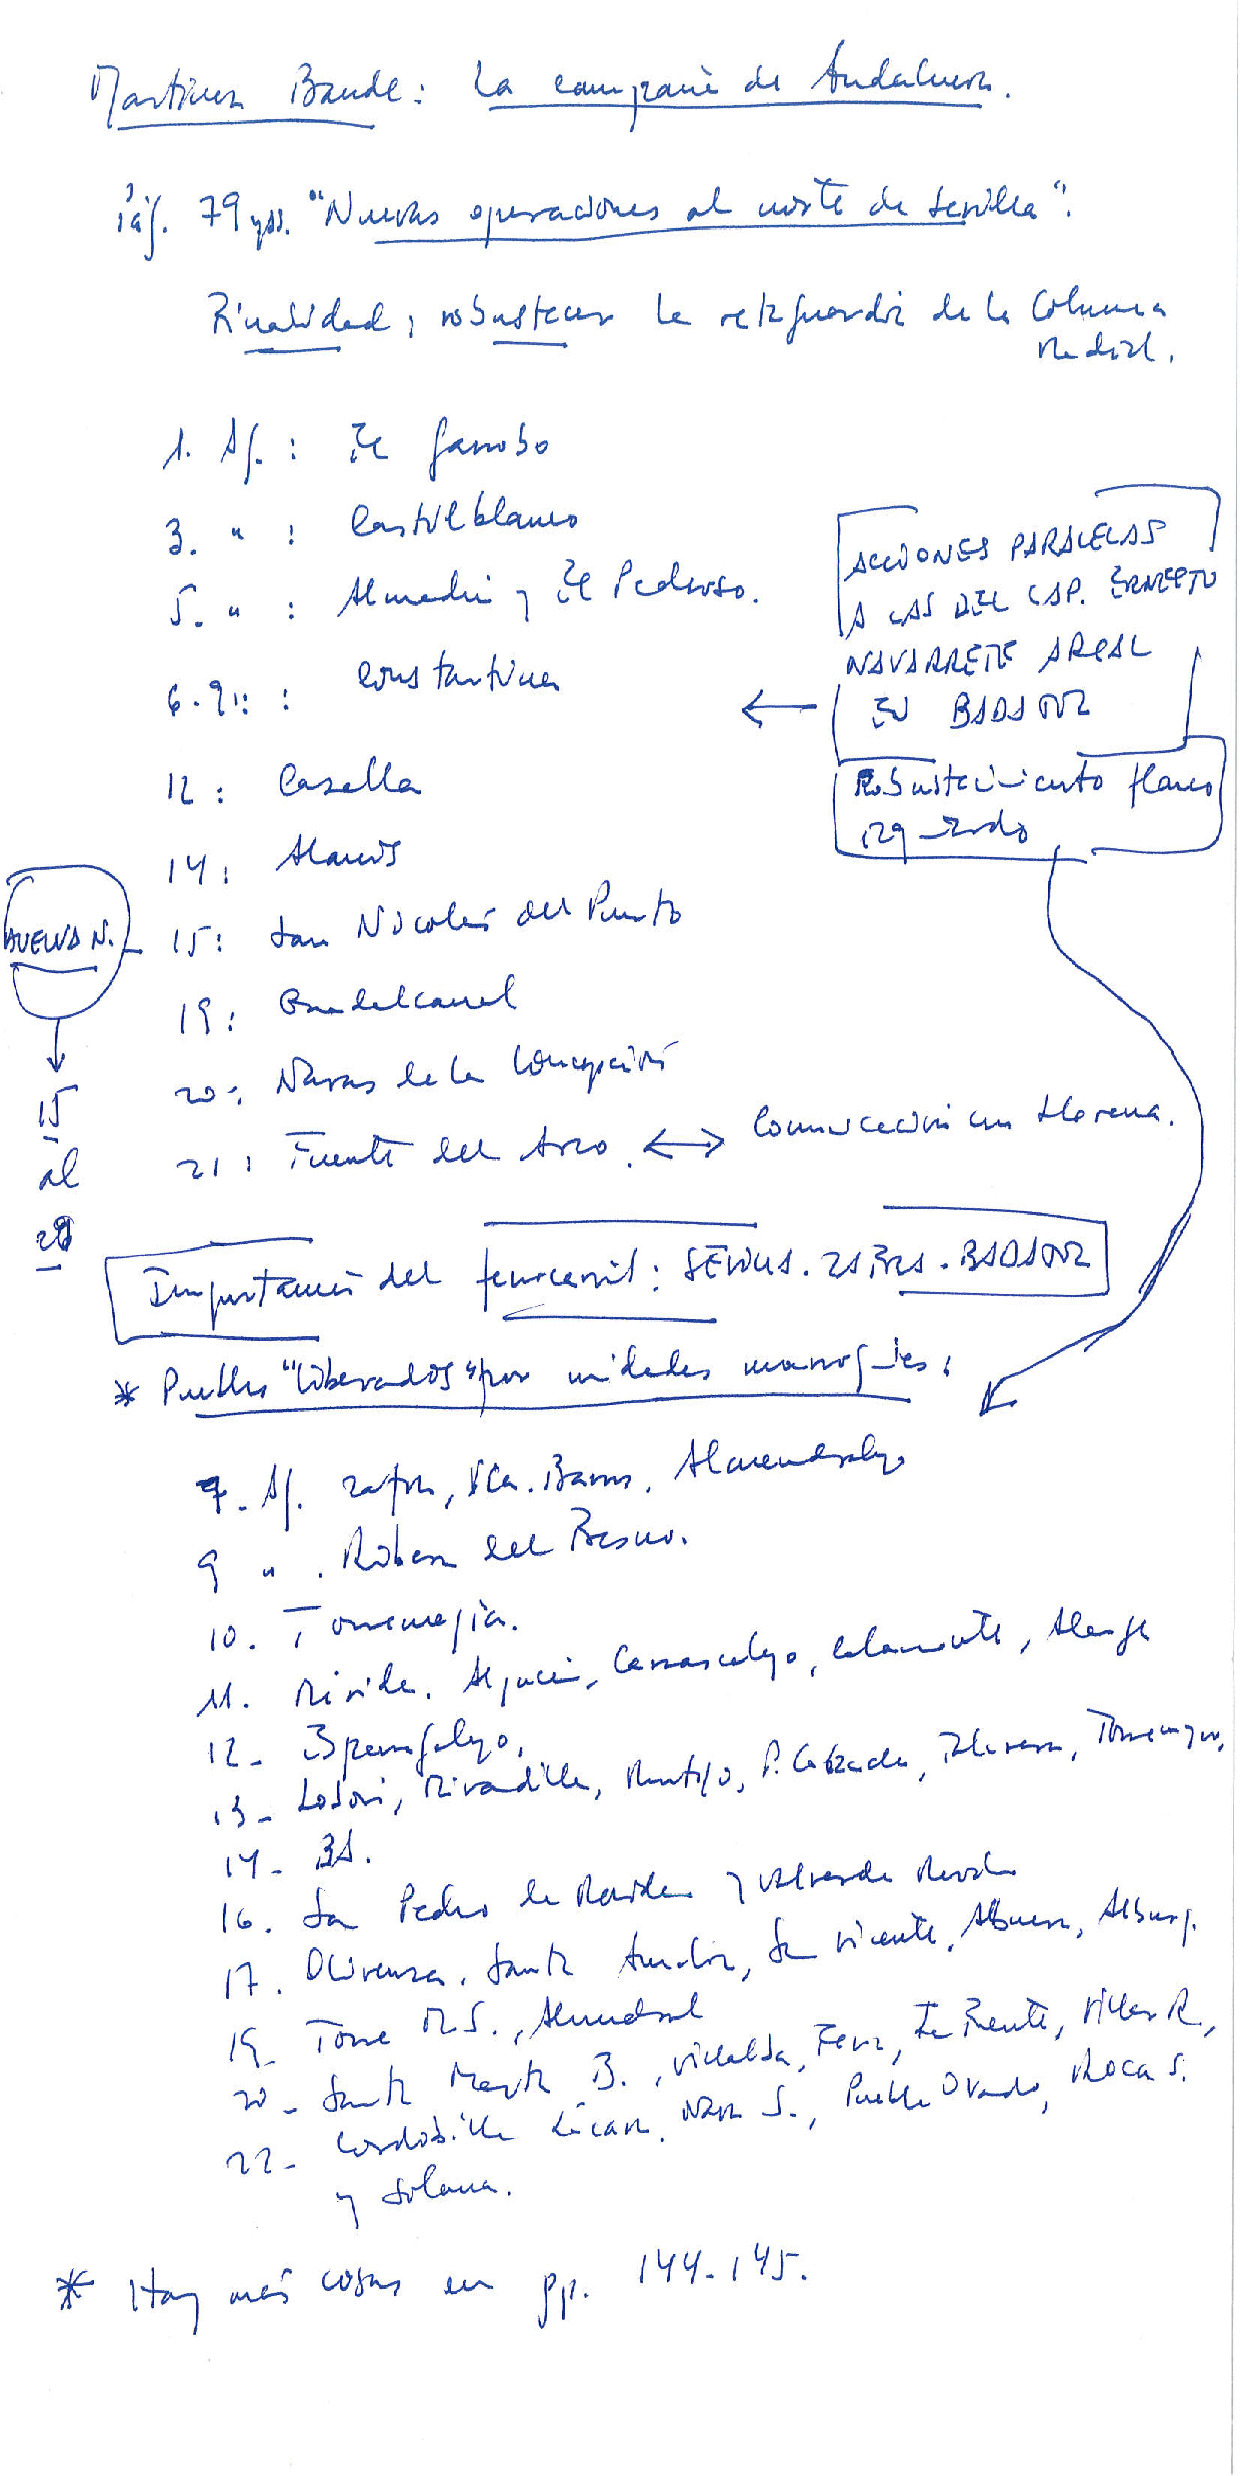 Martínez Bande: La campaña de Andalucía.
pág. 79 y ss. "Nuevas operaciones al norte de Sevilla".
Finalidad: robustecer la retaguardia de la Columna
Madrid.
1. Ag.: El Garrobo
3. " : Castilblanco
5. " : Almadén y El Pedroso.
6-9: : Constantina
12: Cazalla
14: Alanís
15: San Nicolás del Puerto
19: Guadalcanal
20: Navas de la Concepción
21: Fuente del Arco. ↔ Comunicación con Llerena.
ACCIONES PARALELAS
A LAS DEL CAP. ERNESTO
NAVARRETE ARCAL
EN BADAJOZ
Robustecimiento flanco
izquierdo
HUELVA N.
15
al
28
Importancia del ferrocarril: SEVILLA. ZAFRA. BADAJOZ
* Pueblos "liberados" por unidades marroquíes:
7- Ag. Zafra, Vca. Barros, Almendralejo
9 " . Ribera del Fresno.
10. Torremejía.
11. Mérida, Aljucén, Carrascalejo, Calamonte, Alange
12- Esparragalejo,
13- Lobón, Mirandilla, Montijo, P. Calzada, Talavera, Torremayor,
14- BA.
16. San Pedro de Mérida y Valverde Mérida
17. Olivenza, Santa Amalia, San Vicente, Albuera, Alburq.
19- Torre M.S., Almendral
20- Santa Marta B., Villalba, Feria, La Fuente, Villar R.,
22- Cordobilla Lácara, Nava S., Puebla Obando, Roca S.
y Solana.
* Hay más cosas en pp. 144-145.